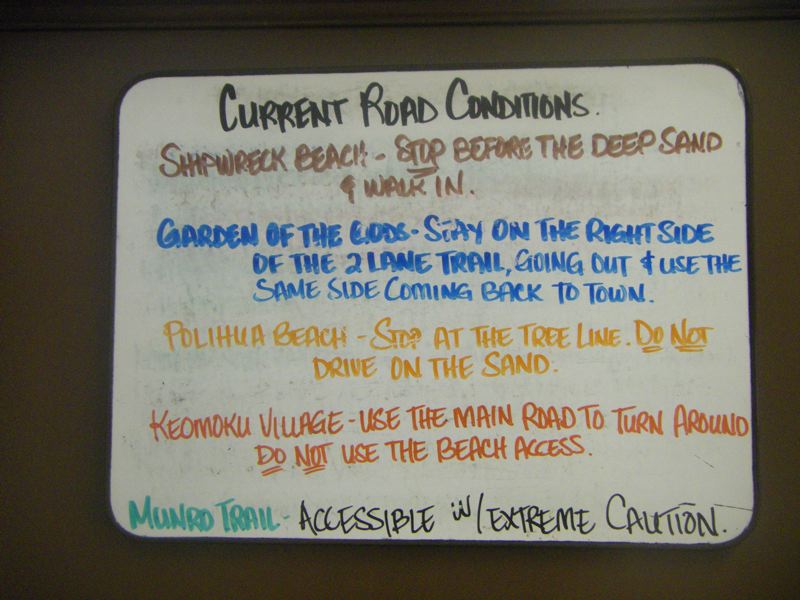 CURRENT ROAD CONDITIONS.
SHIPWRECK BEACH - STOP BEFORE THE DEEP SAND
& WALK IN.
GARDEN OF THE GODS - STAY ON THE RIGHT SIDE
OF THE 2 LANE TRAIL, GOING OUT & USE THE
SAME SIDE COMING BACK TO TOWN.
POLIHUA BEACH - STOP AT THE TREE LINE. DO NOT
DRIVE ON THE SAND.
KEOMOKU VILLAGE - USE THE MAIN ROAD TO TURN AROUND
DO NOT USE THE BEACH ACCESS.
MUNRO TRAIL - ACCESSIBLE W/ EXTREME CAUTION.